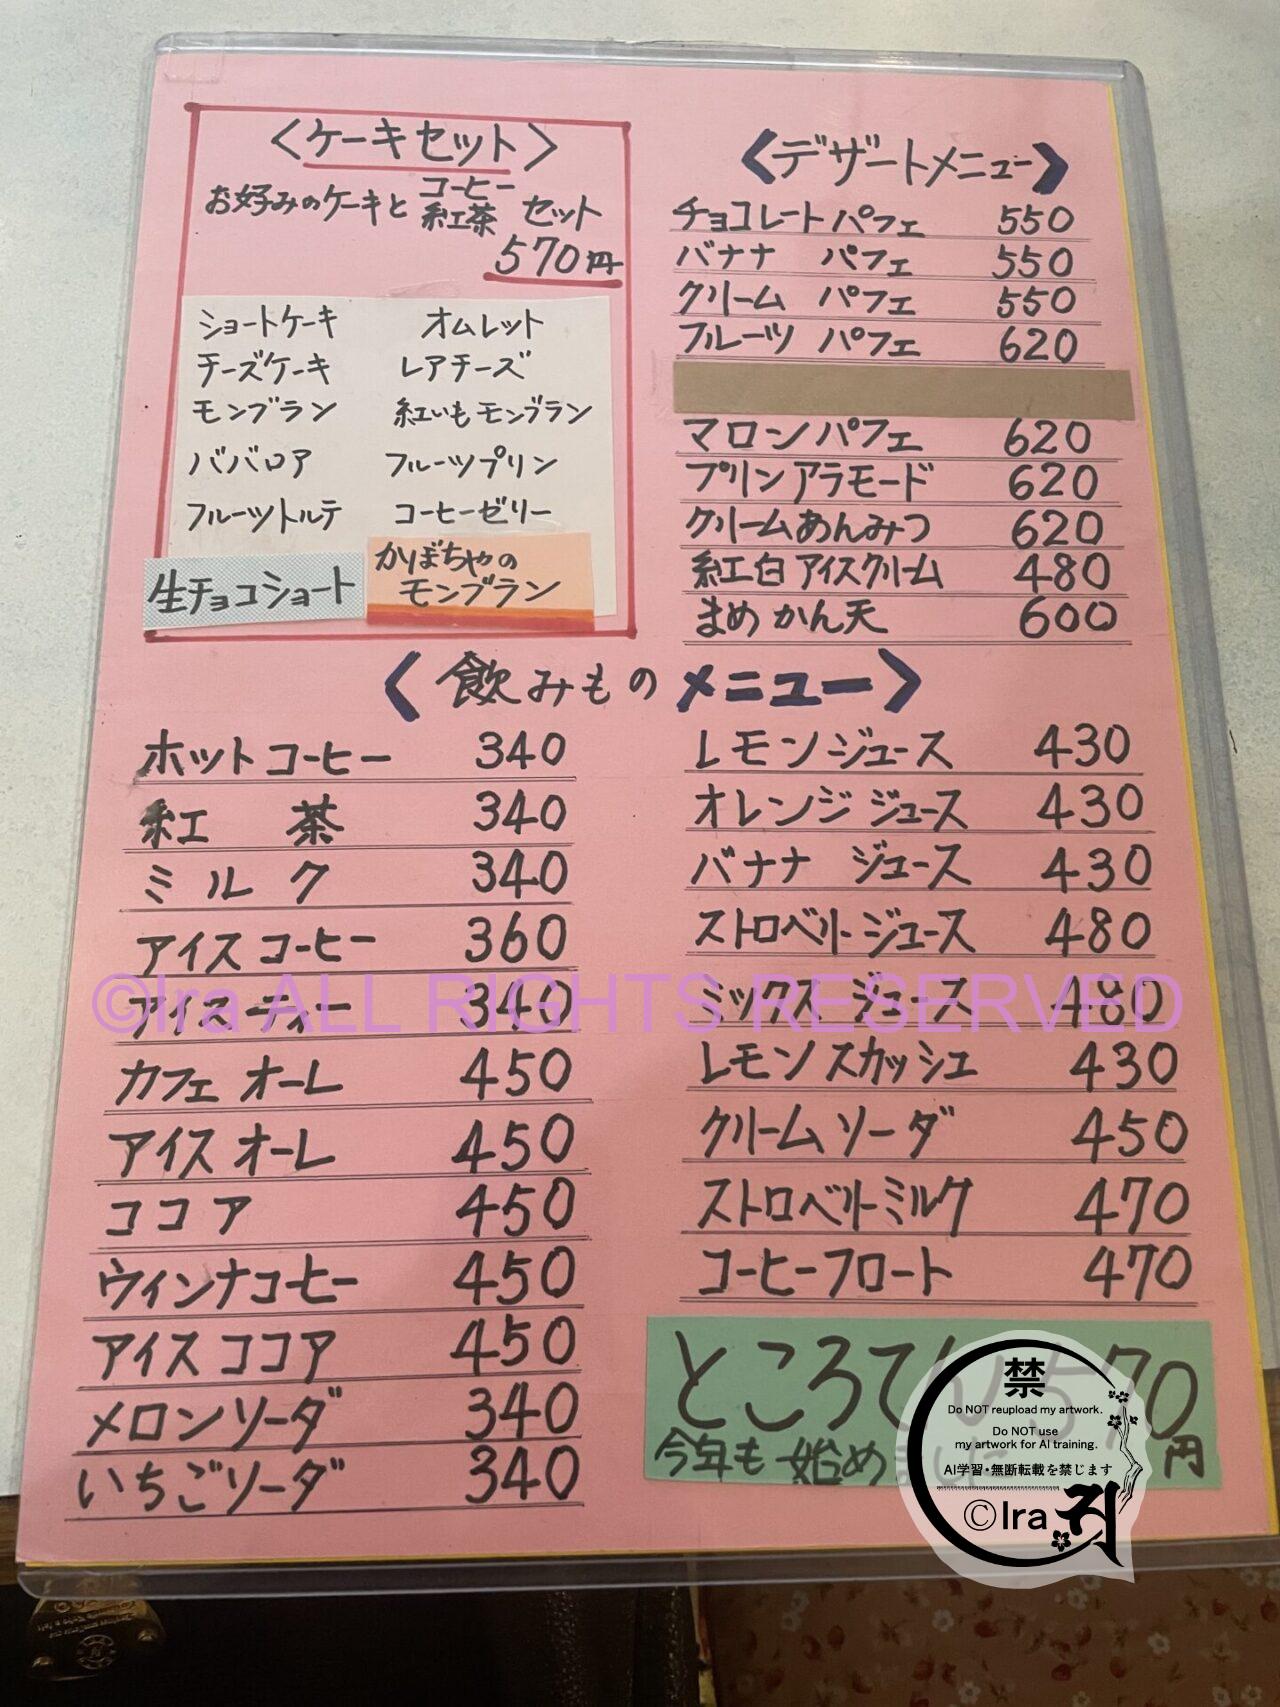 〈ケーキセット〉
お好みのケーキとコーヒー紅茶 セット
570円
ショートケーキ オムレット
チーズケーキ レアチーズ
モンブラン 紅いもモンブラン
ババロア フルーツプリン
フルーツトルテ コーヒーゼリー
生チョコショート
かぼちゃの
モンブラン
〈デザートメニュー〉
チョコレートパフェ 550
バナナ パフェ 550
クリーム パフェ 550
フルーツ パフェ 620
マロンパフェ 620
プリンアラモード 620
クリームあんみつ 620
紅白アイスクリーム 480
まめかん天 600
〈飲みものメニュー〉
ホットコーヒー 340
紅 茶 340
ミルク 340
アイスコーヒー 360
アイスティー 340
カフェオーレ 450
アイスオーレ 450
ココア 450
ウィンナコーヒー 450
アイスココア 450
メロンソーダ 340
いちごソーダ 340
レモンジュース 430
オレンジジュース 430
バナナ ジュース 430
ストロベリージュース 480
ミックスジュース 480
レモンスカッシュ 430
クリームソーダ 450
ストロベリーミルク 470
コーヒーフロート 470
ところてん 570
今年も始め 円
©Ira ALL RIGHTS RESERVED
禁
Do NOT reupload my artwork.
Do NOT use
my artwork for AI training.
AI学習・無断転載を禁じます
©Ira